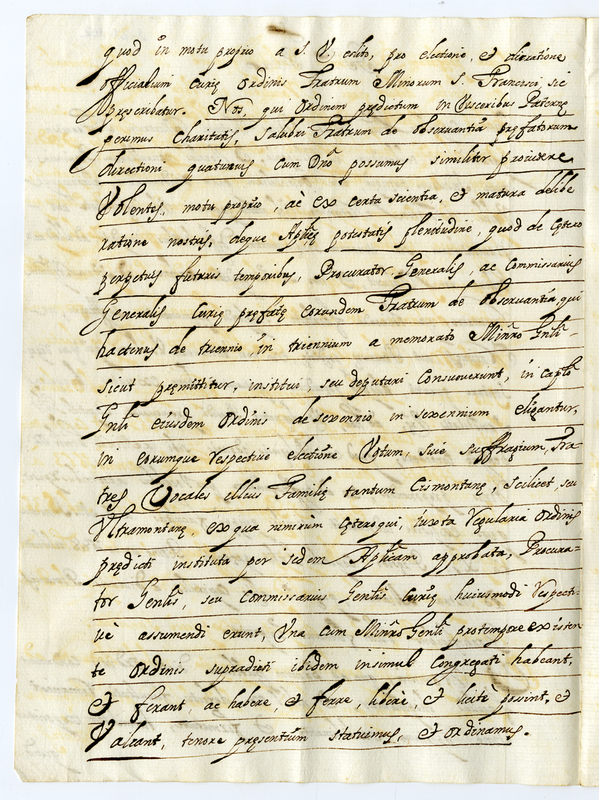 quod in motu proprio a S. V. edito, pro electione, et directione
officialium curię Ordinis Fratrum Minorum S. Francisci, sic
pręscribatur. Nos, qui Ordinem prędictum in visceribus Paternę
gerimus Charitatis, salubri Fratrum de observantia pręfatorum
directioni quatenus cum Dno possumus similiter providere
Volentes, motu proprio, ac ex certa scientia, et matura delibe
ratione nostris, deque Aplicę potestatis plenitudine, quod de cętero
perpetuis futuris temporibus, Procurator Generalis, ac Commissarius
Generalis Curię pręfatę eorundem Fratrum de observantia, qui
hactenus de triennio, in triennium a memorato Minro Gnli -
sicut pręmittitur, institui, seu deputari consueverunt, in caplo
Gnli eiusdem ordinis de sexennio in sexennium eligantur,
in eorumque respectivè electione Votum, sive suffragium, Fra-
tres Vocales illius Familię tantum Cismontanę, scilicet, seu
Ultramontanę, ex qua nimirùm cęteroqui, iuxta regularia Ordinis
prędicti instituta per sedem Aplicam approbata, Procura-
tor Genlis, seu Commissarius Genlis Curię huiusmodi respecti-
vè assumendi erunt, Una cum Minro Genli pro tempore existen
te Ordinis supradicti ibidem insimul congregati habeant,
et ferant, ac habere, et ferre, liberè, et licitè possint, et
Valeant, tenore pręsentium statuimus, et ordinamus.